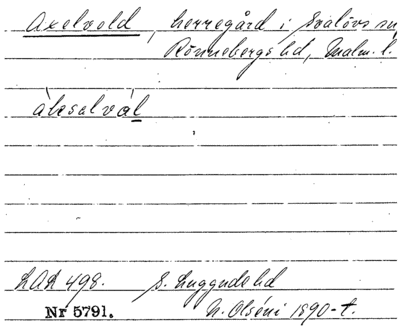 Axelvold, herregård i Svalövs sn,
Rönnebergs hd, Malm. l.
áksalvál
LAL 498. S. Luggude hd
Nr 5791. N. Olséni 1890-t.